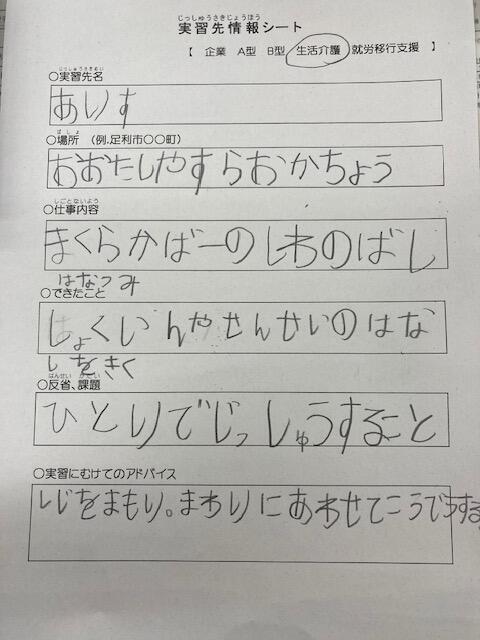 じっしゅうさきじょうほう
実習先情報シート
【 企業 A型 B型 生活介護 就労移行支援 】
じっしゅうさきめい
○実習先名
あいす
ばしょ
○場所 (例.足利市○○町)
おおたしやすらおかちょう
しごとないよう
○仕事内容
まくらかばーのしわのばし
はなつみ
○できたこと
しょくいんやせんせいのはな
しをきく
はんせい かだい
○反省、課題
ひとりでじっしゅうすること
○実習にむけてのアドバイス
しじをまもり。まわりにあわせてこうどうする